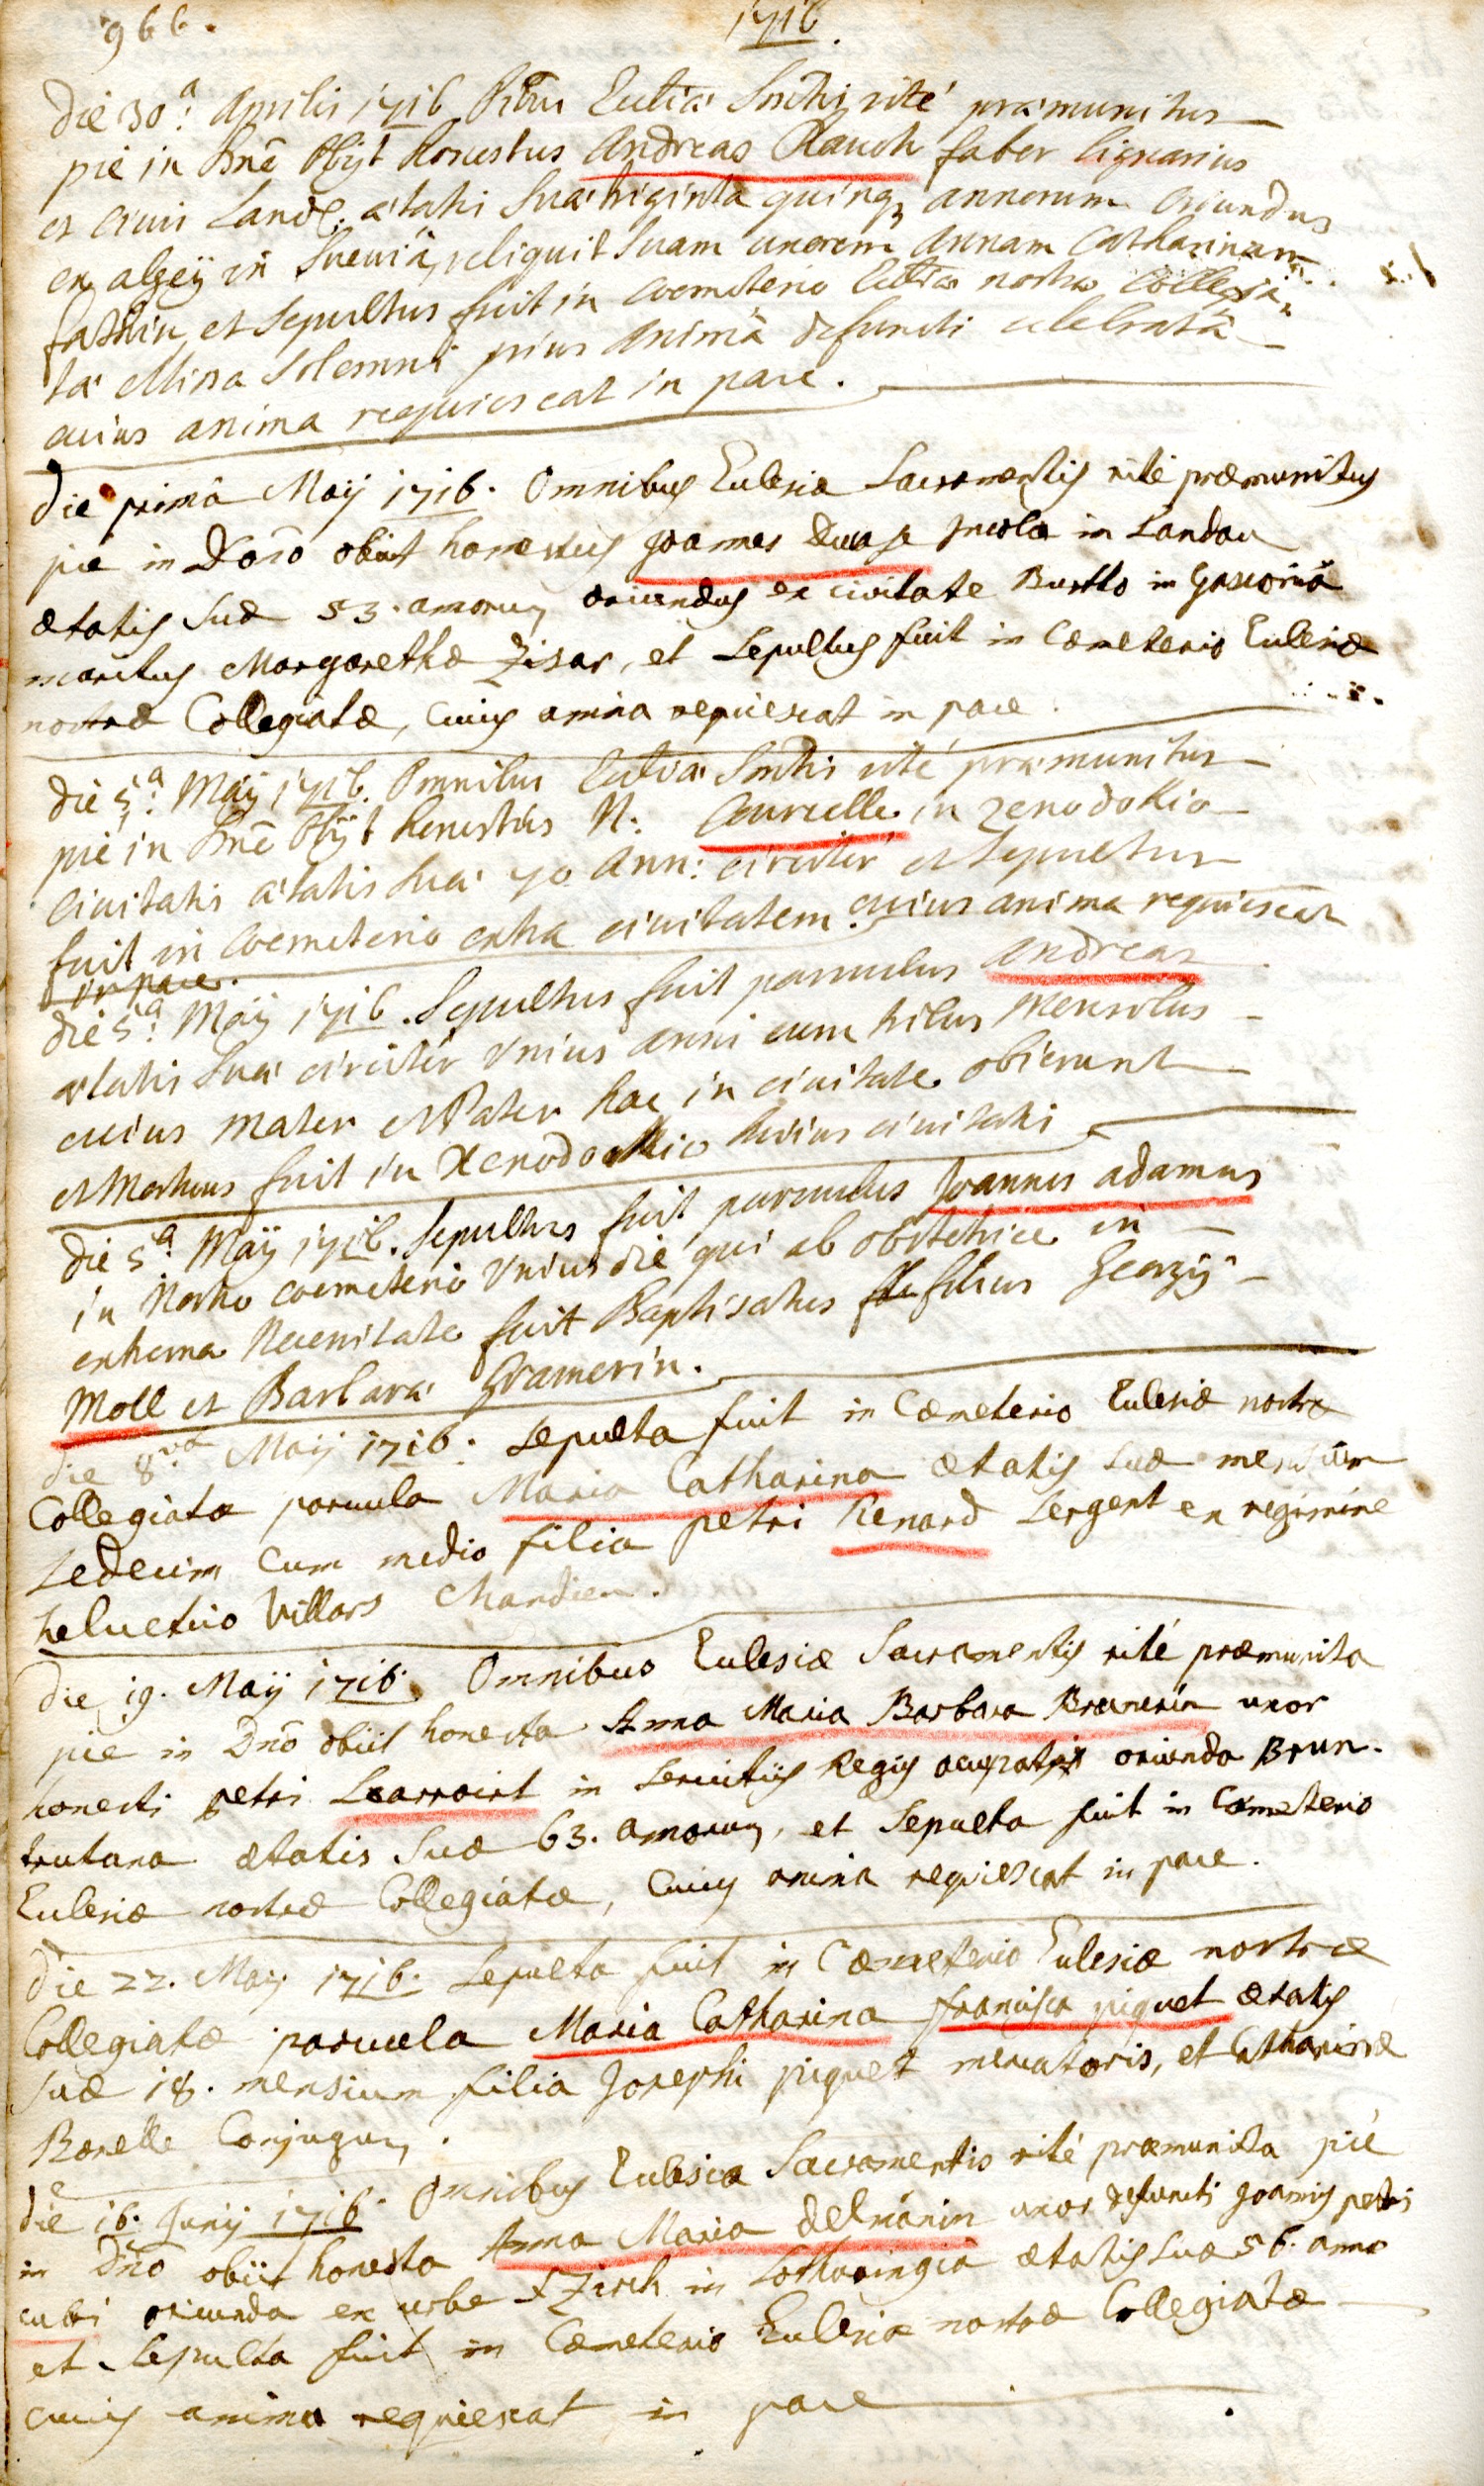 966.
1716.
die 30.a Aprilis 1716 Eccliæ Sacntis rité præmunitus
pié in Dnō Obijt honestus Andreas Rauch faber lignarius
et civis Land: ætatis suæ triginta quinq3 annorum oriundus
ex algeÿ in Sueuiâ, reliquit suam uxorem Annam Catharinam
et sepultus fuit in Coemeterio Eccliæ nostræ Collegia-
tæ Missa Solemni prius Animâ defuncti celebratâ
cuius anima requiescat in pace.
die primâ Maÿ 1716. Omnibus Ecclesiæ Sacramentis rité præmunitus
pié in Dōno obiit honestus Joannes Incola in Landau
ætatis suæ 53. annorum oriundus ex civitate in Gasconiâ
maritus Margarethæ Zisar, et sepultus fuit in Cæmeterio Ecclesiæ
nostræ Collegiatæ, Cuius anima requiescat in pace.
die 5.a Maÿ 1716. Omnibus Eccliæ Sacntis rité præmunitus
pié in Dnō Obijt honestus N: Courcelle in xenodokio
Civitatis ætatis suæ 70 Ann: circiter et sepultus
fuit in Coemeterio extra civitatem. cuius anima requiescat
in pace.
die 5.a Maÿ 1716. Sepultus fuit parvulus Andreas
ætatis suæ circiter Vnius anni cum tribus Mensibus
cuius Mater et Pater hac in civitate obierunt
et Mortuus fuit in Xenodokio huius civitatis
die 5.a Maÿ 1716. Sepultus fuit parvulus Joannes adamus
in Nostro coemeterio Vnius die qui ab obstetrice in
extrema Necessitate fuit Baptisatus filius Georgÿ
Moll et Barbaræ Gramerin.
die 8.va Maÿ 1716. Sepulta fuit in Cæmeterio Ecclesiæ nostræ
Collegiatæ parvula Maria Catharina ætatis suæ mensium
sedecim cum medio filia petri Renard sergent ex regimine
helvetico Villars Chandieu.
die 19. Maÿ 1716. Omnibus Ecclesiæ Sacramentis rité præmunita
pie in Dnō obiit honesta Anna Maria Barbara uxor
honesti petri in servitiis Regis occupatis oriunda Brun-
trutana ætatis suæ 63. annorum, et sepulta fuit in Cæmeterio
Ecclesiæ nostræ Collegiatæ, Cuius anima requiescat in pace.
Die 22. Maÿ 1716. Sepulta fuit in Cæmeterio Ecclesiæ nostræ
Collegiatæ parvula Maria Catharina francisca piquet ætatis
suæ 18. mensium filia Josephi piquet mercatoris, et Catharinæ
Bonelle Conjugum.
die 16. Junÿ 1716. Omnibus Ecclesiæ Sacramentis rité præmunita pié
in Dnō obiit honesta Anna Maria delmanin uxor defuncti Joannis petri
cubri oriunda ex urbe in Lotharingia ætatis suæ 56. anno
et Sepulta fuit in Cæmeterio Ecclesiæ nostræ Collegiatæ
cuius anima requiescat in pace